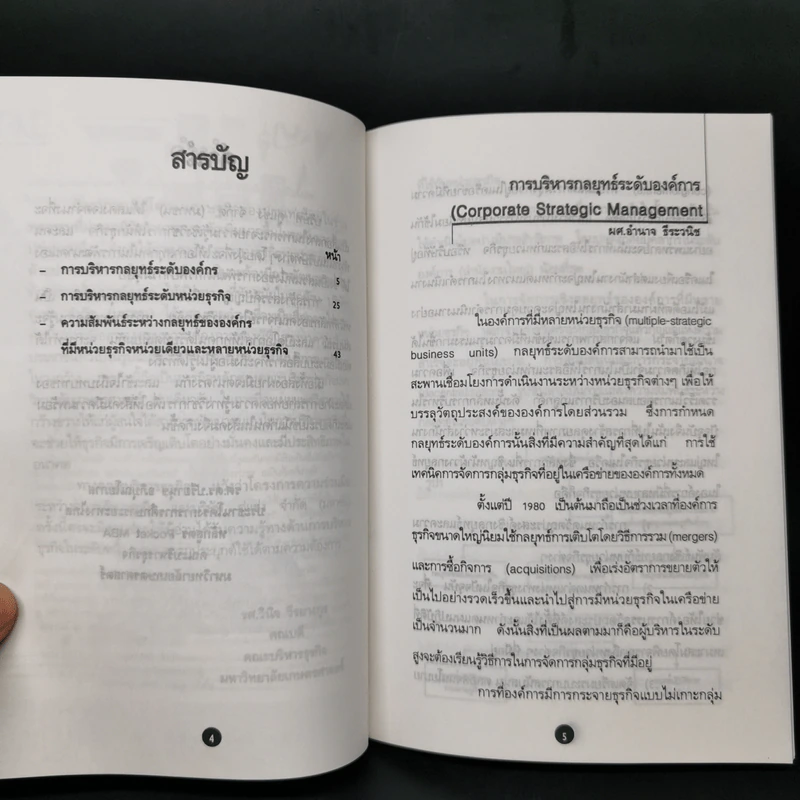 สารบัญ
หน้า
– การบริหารกลยุทธ์ระดับองค์กร 5
– การบริหารกลยุทธ์ระดับหน่วยธุรกิจ 25
– ความสัมพันธ์ระหว่างกลยุทธ์ขององค์กร
ที่มีหน่วยธุรกิจหน่วยเดียวและหลายหน่วยธุรกิจ 43
4
การบริหารกลยุทธ์ระดับองค์การ
(Corporate Strategic Management
ผศ.อำนาจ ธีระวนิช
ในองค์การที่มีหลายหน่วยธุรกิจ (multiple-strategic
business units) กลยุทธ์ระดับองค์การสามารถนำมาใช้เป็น
สะพานเชื่อมโยงการดำเนินงานระหว่างหน่วยธุรกิจต่างๆ เพื่อให้
บรรลุวัตถุประสงค์ขององค์การโดยส่วนรวม ซึ่งการกำหนด
กลยุทธ์ระดับองค์การนั้นสิ่งที่มีความสำคัญที่สุดได้แก่ การใช้
เทคนิคการจัดการกลุ่มธุรกิจที่อยู่ในเครือข่ายขององค์การทั้งหมด
ตั้งแต่ปี 1980 เป็นต้นมาถือเป็นช่วงเวลาที่องค์การ
ธุรกิจขนาดใหญ่นิยมใช้กลยุทธ์การเติบโตโดยวิธีการรวม (mergers)
และการซื้อกิจการ (acquisitions) เพื่อเร่งอัตราการขยายตัวให้
เป็นไปอย่างรวดเร็วขึ้นและนำไปสู่การมีหน่วยธุรกิจในเครือข่าย
เป็นจำนวนมาก ดังนั้นสิ่งที่เป็นผลตามมาก็คือผู้บริหารในระดับ
สูงจะต้องเรียนรู้วิธีการในการจัดการกลุ่มธุรกิจที่มีอยู่
การที่องค์การมีการกระจายธุรกิจแบบไม่เกาะกลุ่ม
5